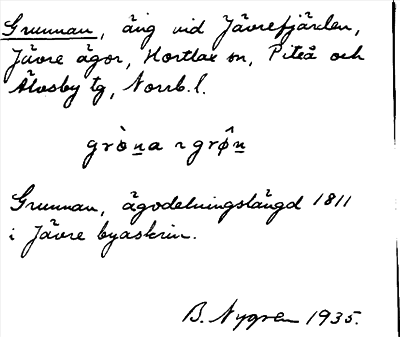 Grunnan, äng vid Jävrefjärden,
Jävre ägor, Hortlax sn, Piteå och
Älvsby tg, Norrb. l.
grò̱na ~ grø̂n
Grunnan, ägodelningslängd 1811
i Jävre byaskrin.
B. Nygren 1935.